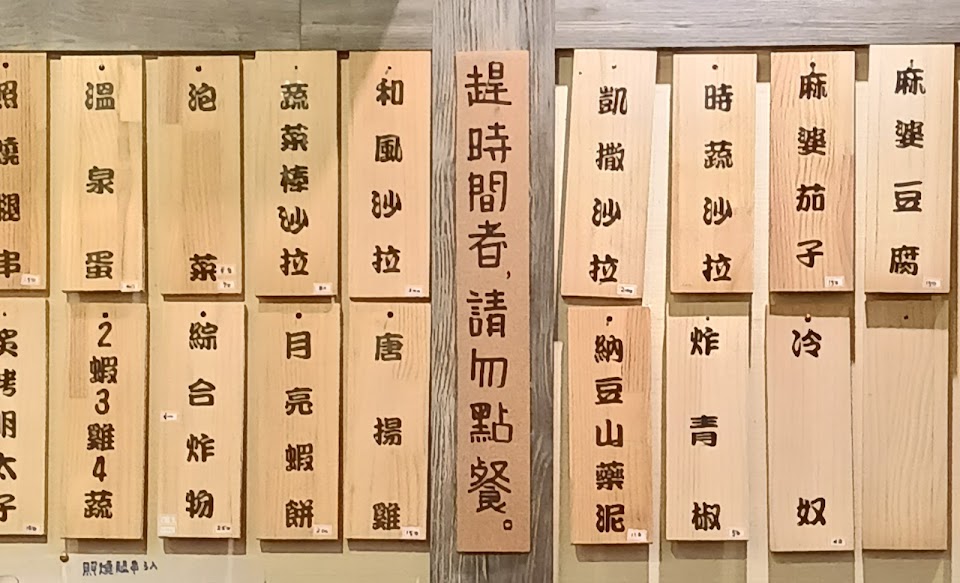 麻婆豆腐
麻婆茄子
時蔬沙拉
凱撒沙拉
趕時間者,請勿點餐。
和風沙拉
蔬菜棒沙拉
泡菜
溫泉蛋
照燒腿串
冷奴
炸青椒
納豆山藥泥
唐揚雞
月亮蝦餅
綜合炸物
2蝦3雞4蔬
炙烤明太子